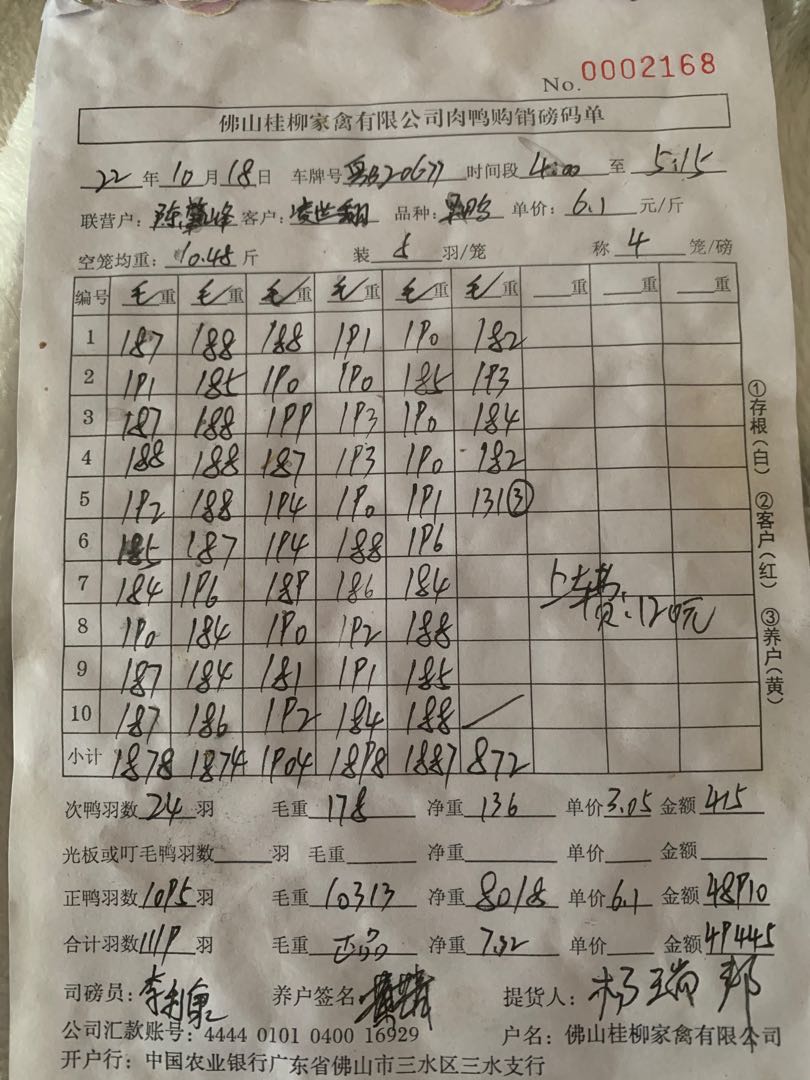 No. 0002168
佛山桂柳家禽有限公司肉鸭购销磅码单
22年10月18日 车牌号 粤B20677 时间段 4:00 至 5:15
联营户: 陈 峰 客户: 品种: 单价: 6.1 元/斤
空笼均重: 10.45 斤 装 5 羽/笼 称 4 笼/磅
编号 毛重 毛重 毛重 毛重 毛重 毛重 重 重 重
1 187 188 188 191 190 182
2 191 185 190 190 185 193
3 187 188 199 193 190 184
4 188 188 187 193 190 182
5 192 188 194 190 191 131③
6 185 187 194 188 196
7 184 196 189 186 184 上车费:120元
8 190 184 190 192 188
9 187 184 181 191 185
10 187 186 192 184 188
小计 1878 1874 1904 1898 1887 872
次鸭羽数 24 羽 毛重 178 净重 136 单价 3.05 金额 415
光板或叮毛鸭羽数 羽 毛重 净重 单价 金额
正鸭羽数 1095 羽 毛重 10313 净重 8018 单价 6.1 金额 48910
合计羽数 1119 羽 毛重 正品 净重 7.32 单价 金额 49445
司磅员: 李 养户签名 提货人: 杨瑞邦
公司汇款账号: 4444 0101 0400 16929 户名: 佛山桂柳家禽有限公司
开户行: 中国农业银行广东省佛山市三水区三水支行
①存根(白) ②客户(红) ③养户(黄)